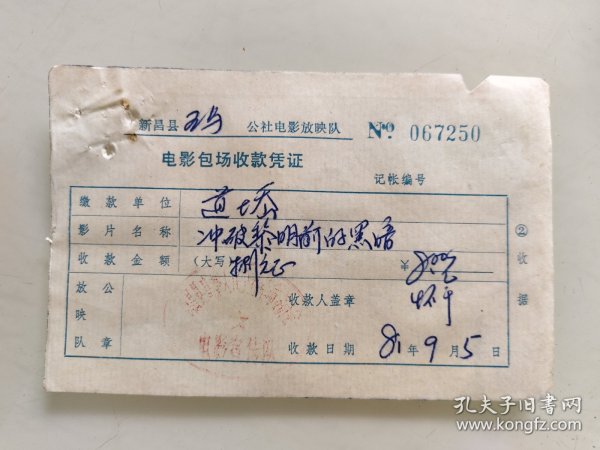 新昌县 公社电影放映队 No 067250
电影包场收款凭证
记帐编号
缴款单位 道士岙
影片名称 冲破黎明前的黑暗
收款金额 (大写 捌元正 ¥
放映队公章 收款人盖章
收款日期 81年9月5日
②收据
孔夫子旧书网
www.kongfz.com